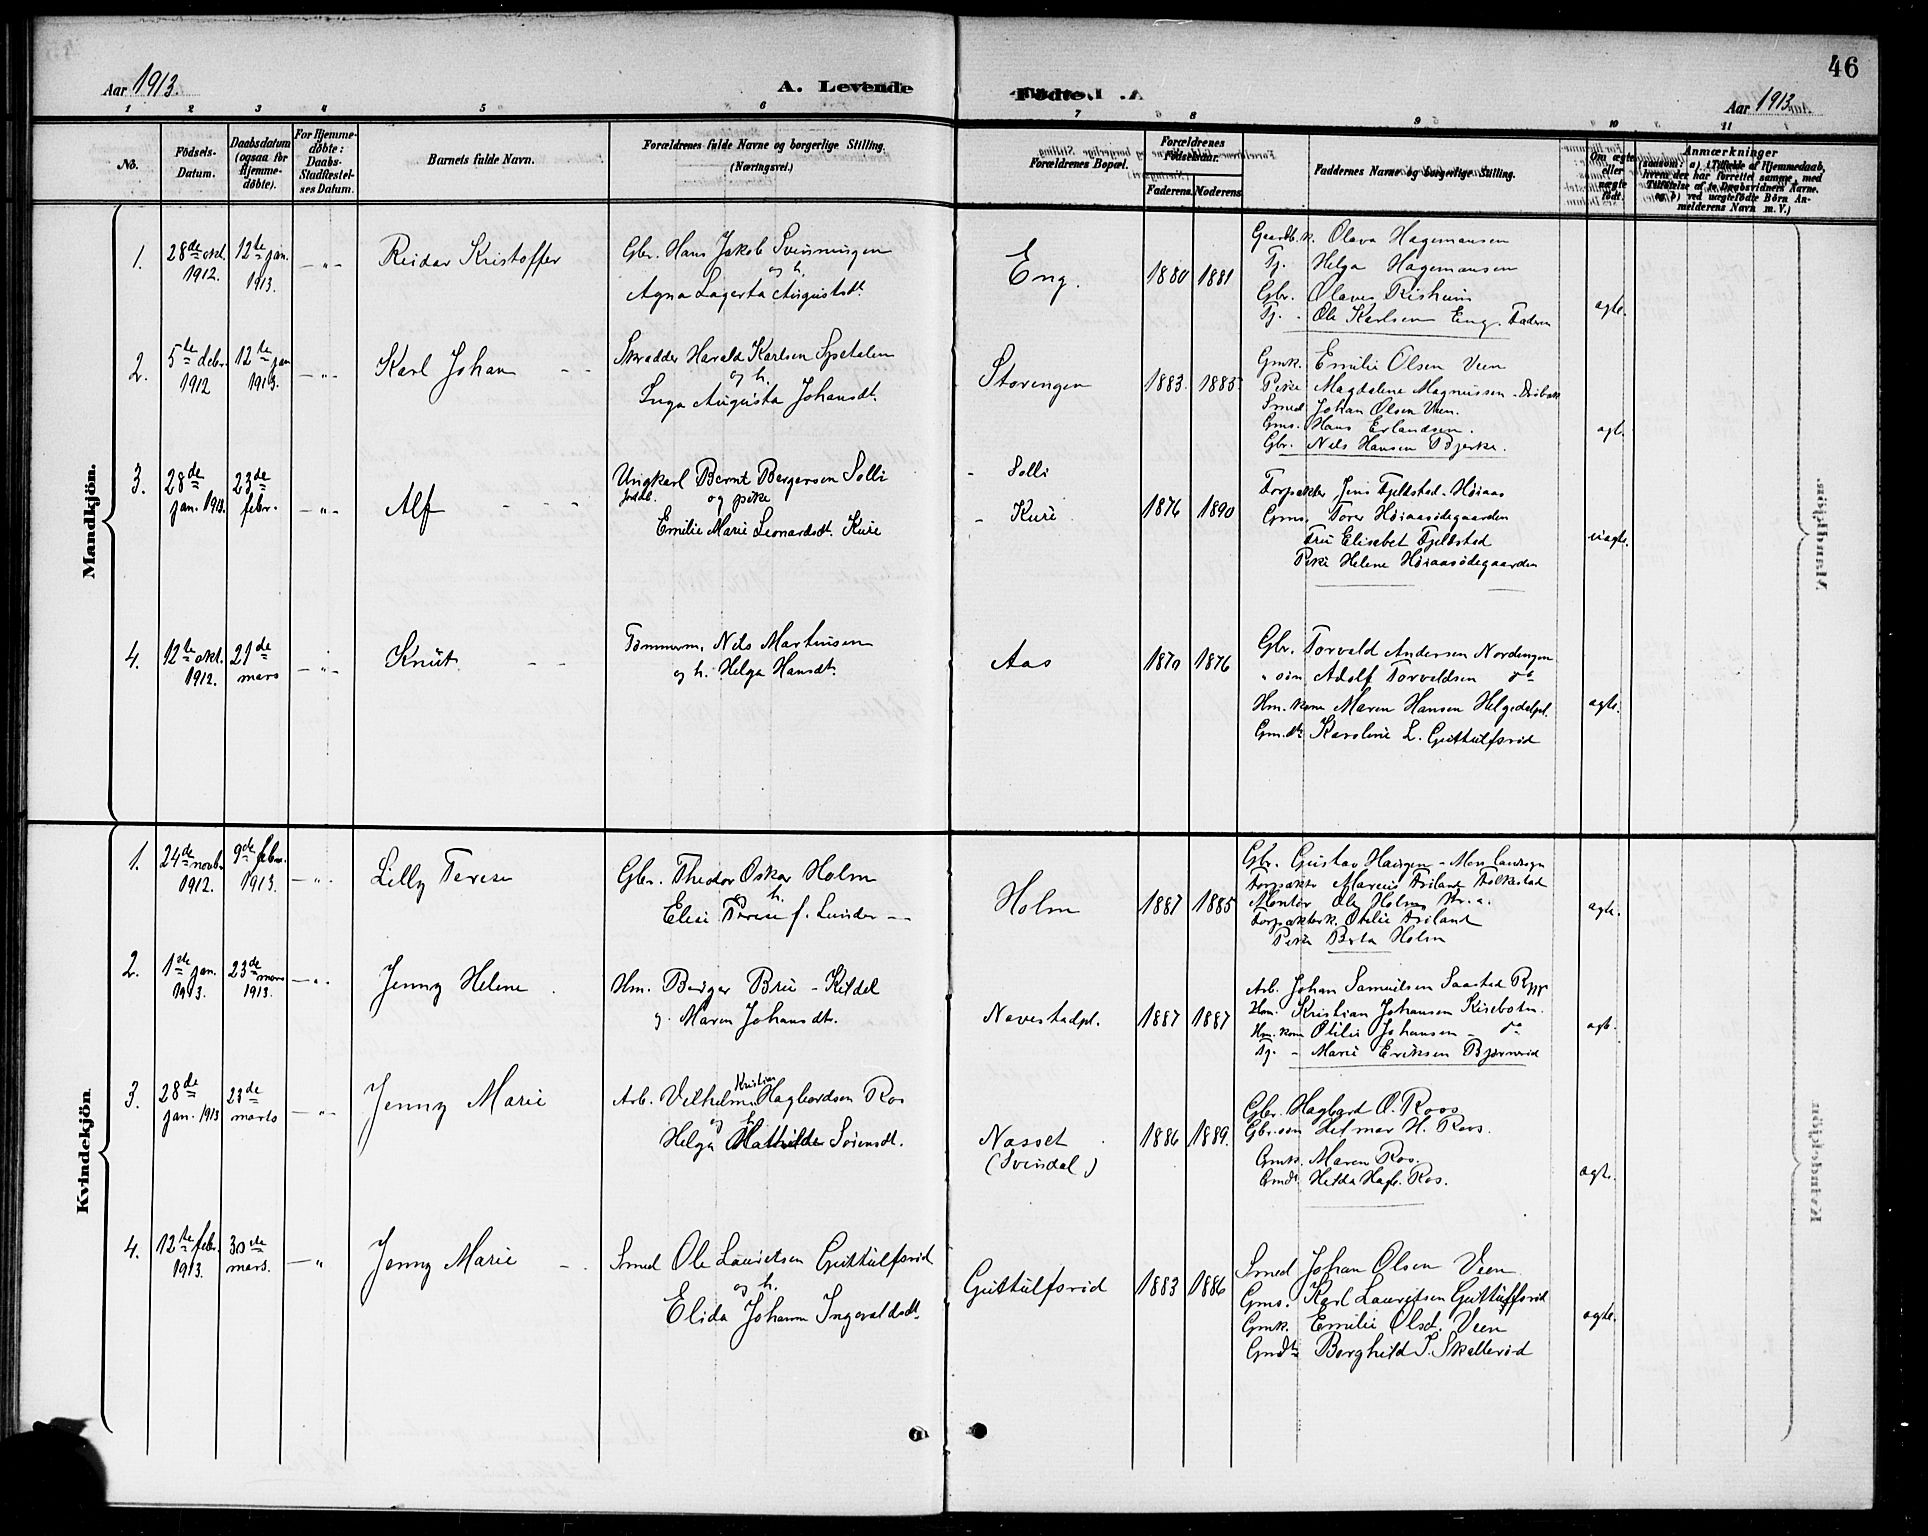 46
Aar 1913.
A. Levende
Fødte.
Aar 1913
1 2 3 4 5 6 7 8 9 10 11
No.
Fødsels-Datum.
Daabsdatum (ogsaa for Hjemme-døbte).
For Hjemme-døbte: Daabs-Stadfæstel-ses Datum.
Barnets fulde Navn.
Forældrenes fulde Navne og borgerlige Stilling.
(Næringsvei.)
Forældrenes Bopæl.
Forældrenes Fødselsaar.
Faderens. Moderens.
Faddernes Navne og borgerlige Stilling.
Om ægte eller uægte født.
Anmærkninger
(saasom: a) i Tilfælde af Hjemmedaab, hvem der har forrettet samme, med Tilføielse af to Daabsvidners Navne, og b) ved uægtefødte Børn Anmelderens Navn m. V.)
Mandkjön.
1. 28de okt. 1912. 12te jan. 1913. — " — Reidar Kristoffer
Gbr. Hans Jakob Svenningsen
og h.
Agna Lagerta Augustsdt.
Eng. 1880 1881
Gaardb.k. Olava Hagemansen
Tj. Helga Hagemansen
Gbr. Olaves Risheim
Tj. Ole Karlsen Eng. Faderen
ægte.
2. 5te debr. 1912 12te jan 1913. — " — Karl Johan
Skrædder Harald Karlsen Spetalen
og h.
Inga Augusta Johansdt.
Storengen 1883. 1885
Gmk. Emilie Olsen Veen
Pike Magdalene Magnussen - Drøbak
Smed Johan Olsen Veen.
Gms. Hans Erlandsen.
Gbr. Nils Hansen Bjerke.
ægt.
3. 28de jan. 1913. 23de febr. — " — Alf
Ungkarl Bernt Bergersen Solli
og pike
Emilie Marie Leonardsdt. Kure
Solli
Kure 1876 1890
Forpakter Jens Fjeldstad - Høiaas
Gms. Torer Høiaasødegaarden
Fru Elisabet Fjeldstad
Pike Helene Høiaasødegaarden
uægte.
4. 12te okt. 1912. 21de mars — " — Knut
Tømmerm. Nils Martinsen
og h. Helga Hansdt.
Aas 1870 1876
Gbr. Torvald Andersen Nordengen
" søn Adolf Torvaldsen do
Hm. kone Maren Hansen Helgedalpl.
Gm.dtr. Karoline L. Guttulfsrød
ægte.
Kvindekjön
1. 24de novbr. 1912. 9de febr. 1913. — " — Lilly Terese
Gbr. Theodor Oskar Holm
h.
Elise Terese f. Lunder
Holm 1887 1885
Gbr. Gustav Haugen - Moss landsogn
Forpakter Marcus Friland Folkestad
Montør Ole Holm Kr.a.
Forpakterk. Otilie Friland
Pike Berta Holm
ægte.
2. 1de jan. 1913. 23de mars 1913. — " — Jenny Helene
Hm. Berger Bru - Kildal
g. Maren Johansdtr.
Navestadpl. 1887 1887
Arb. Johan Samuelsen Saastad Rygge
Hm. Kristian Johansen Kisebotn.
Hm. kone Otilie Johansen - do
Tj. - Marie Eriksen Bjørnerød
ægt.
3. 28de jan. 1913 23de marts — " — Jenny Marie
Arb. Vilhelm Kristian Hagbardsen Ros
og h.
Helga Mathilde Sørensdt.
Næsset
(Svindal) 1886 1889.
Gbr. Hagbart O. Roos
Gbr.søn Helmar H. Roos.
Gmk. Maren Ros.
Gmdtr. Hilda Hagb. Ros.
ægte.
4. 12te febr. 1913. 30de mars. — " Jenny Marie
Smed Ole Lauritsen Guttulfsrød
og h.
Elida Johanne Ingevaldsdt.
Guttulfsrød 1883 1886
Smed Johan Olsen Veen
Gms. Karl Lauritsen Guttulfsrød
Gmk. Emilie Olsd. Veen
Gmdtr. Borghild P. Skallerød
ægte.